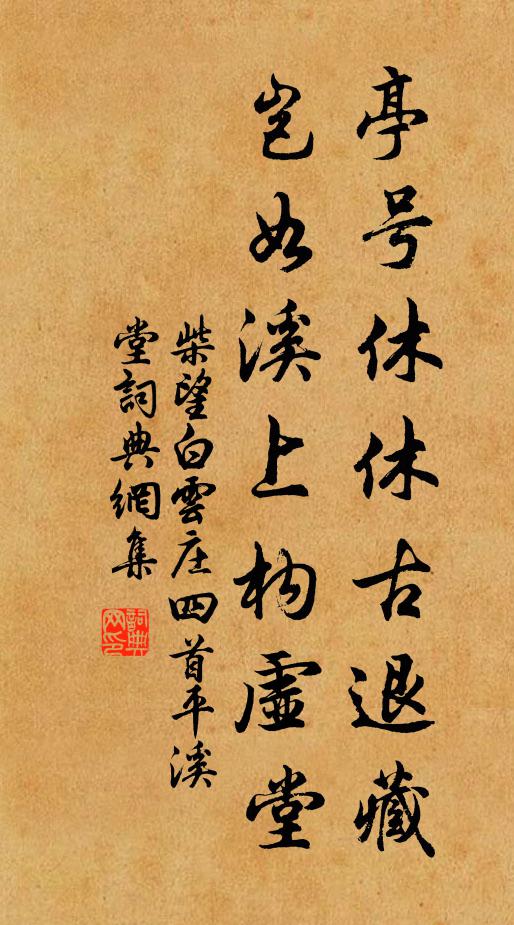 亭号休休古退藏
岂如溪上构虛堂
柴望白雲庄四首平溪
堂詞典網集
詞典网印